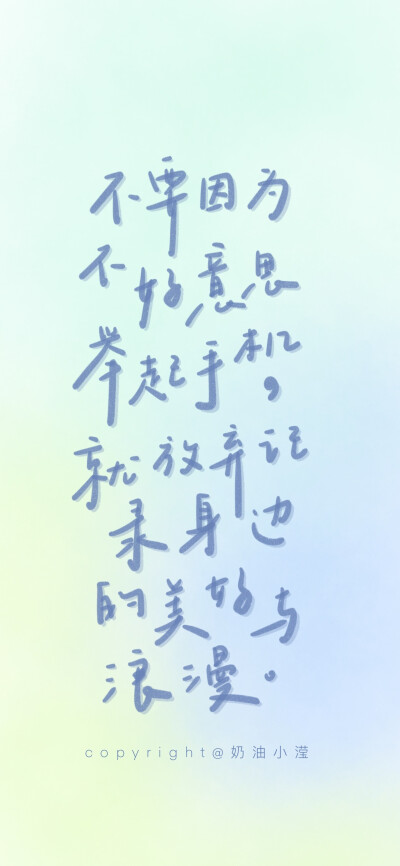 不要因为
不好意思
举起手机，
就放弃记
录身边
的美好与
浪漫。
copyright@奶油小滢